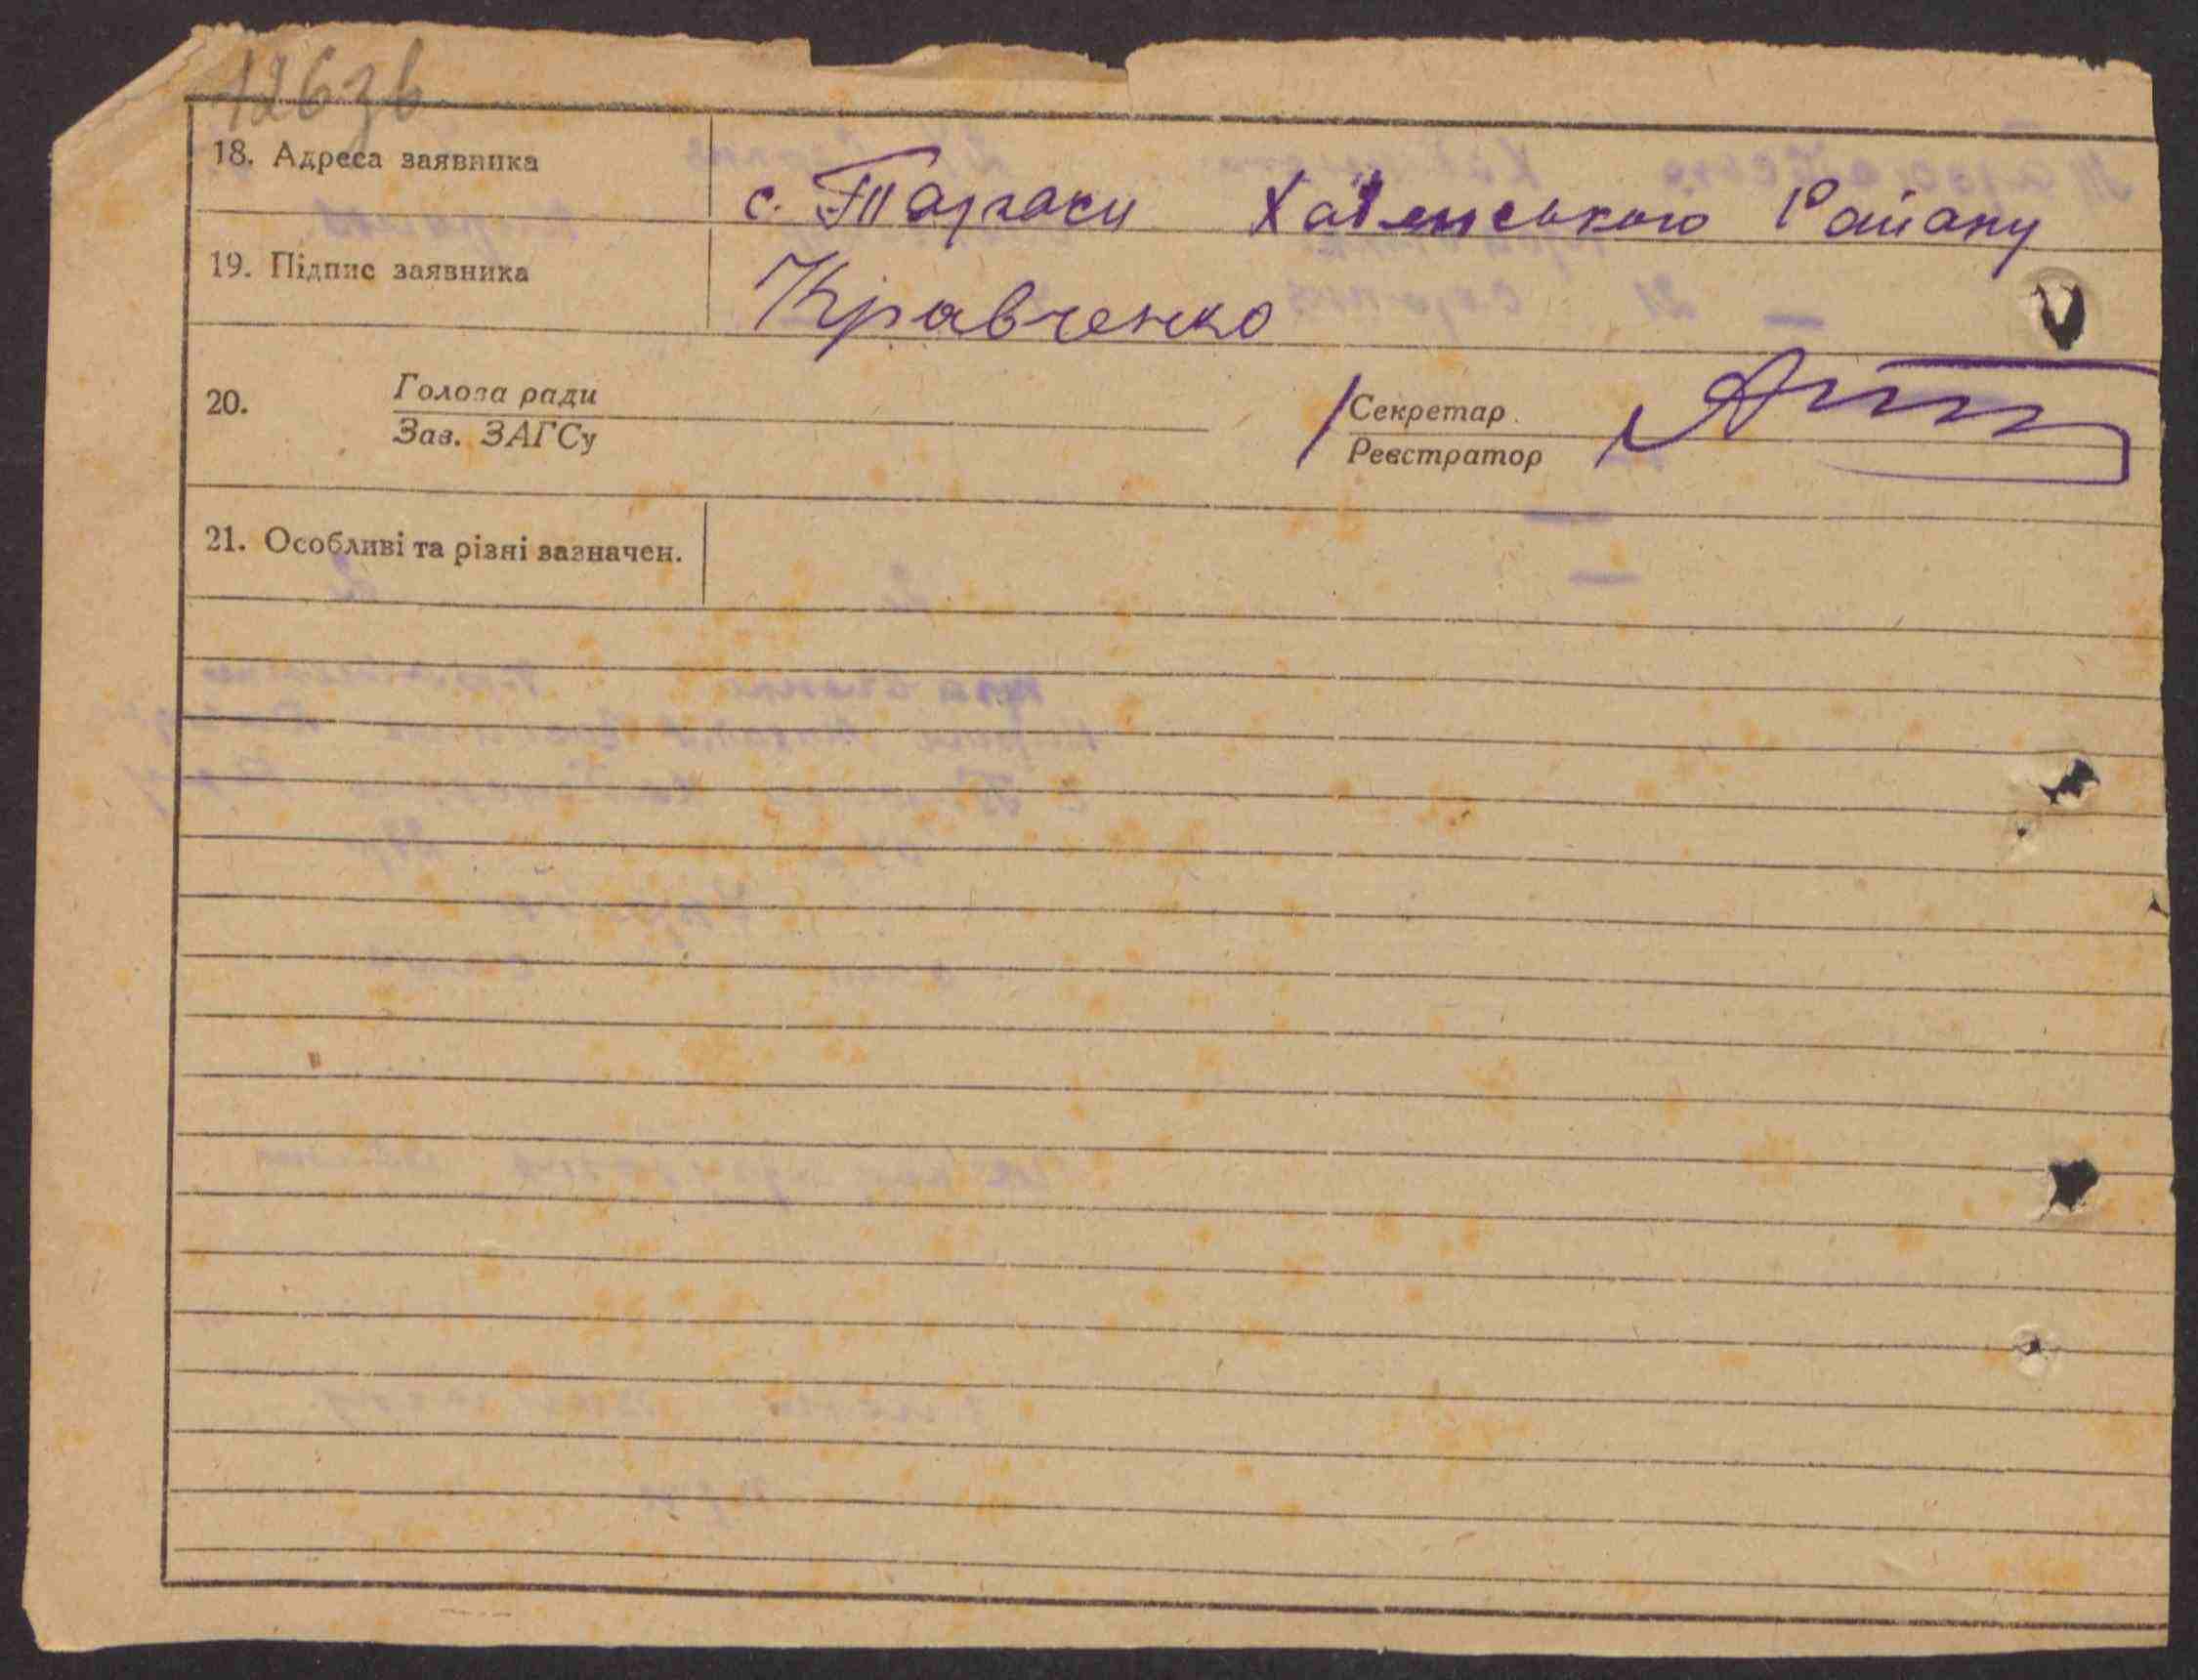 126зв
18. Адреса заявника
с. Таргаси Хабенського Району
19. Підпис заявника
Кравченко
20. Голова ради
Зав. ЗАГСу
Секретар
Реєстратор
21. Особливі та різні зазначен.